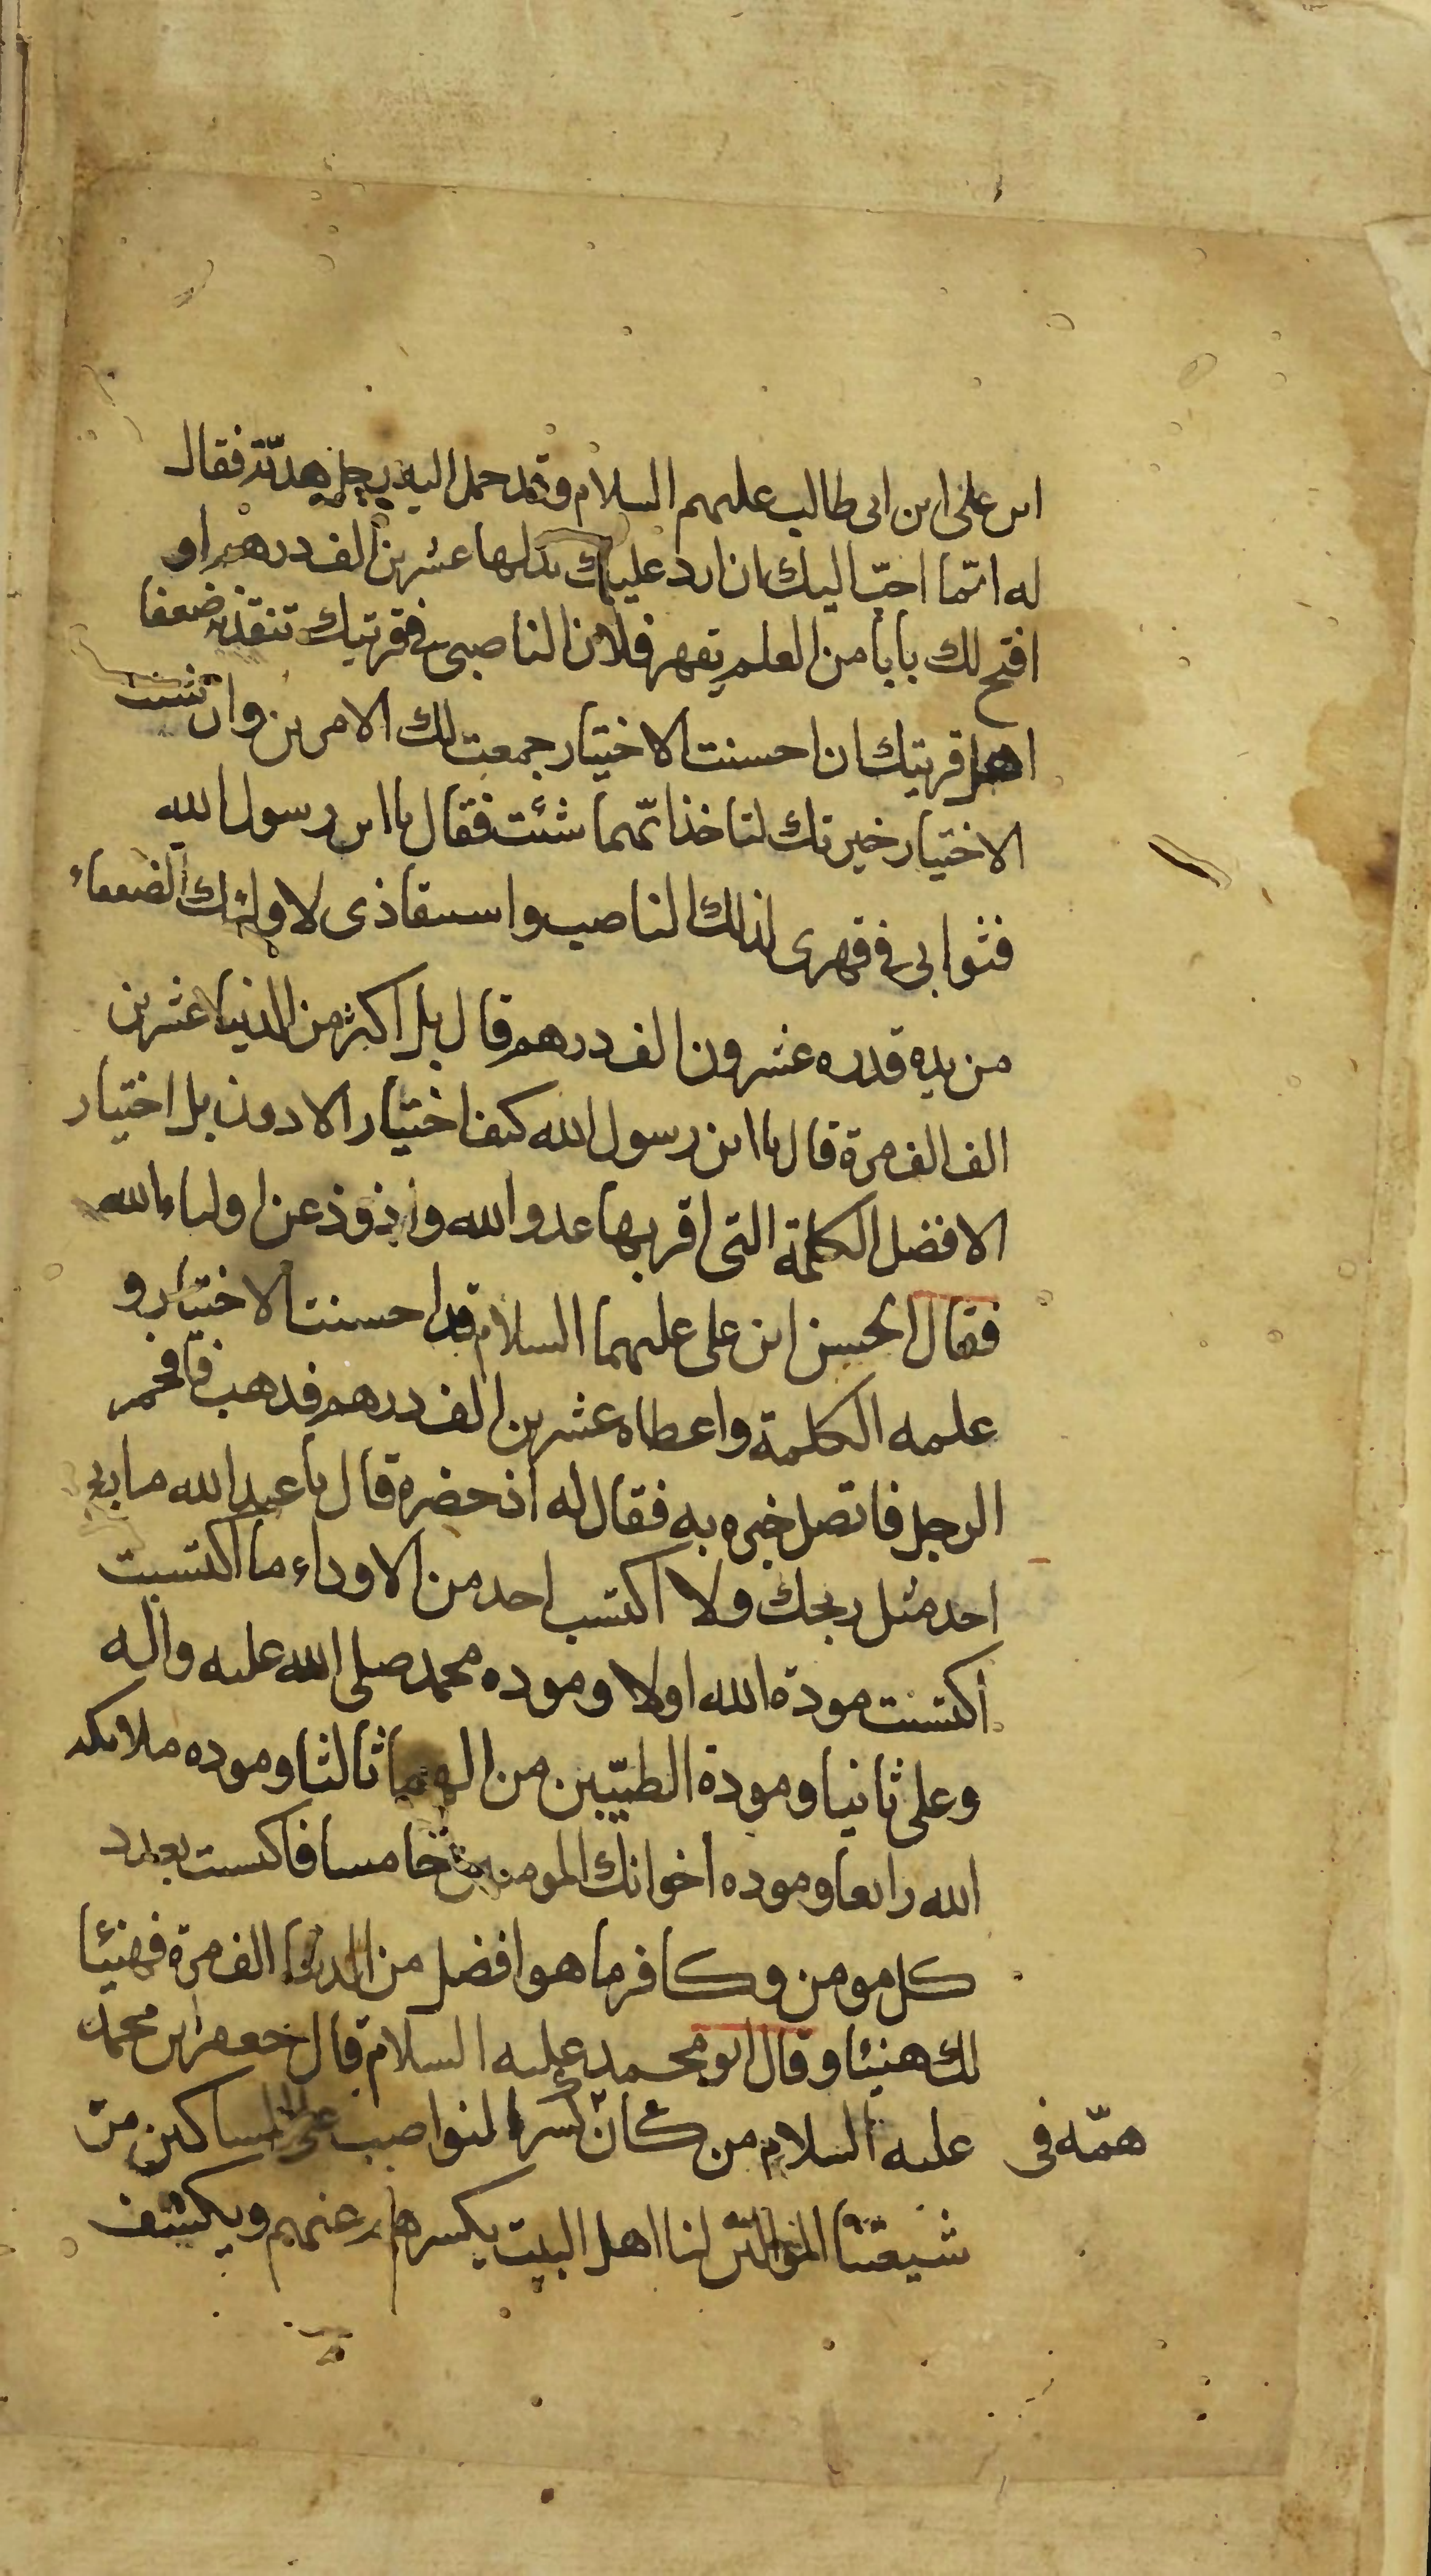 ابن على ابن ابى طالب عليهم السلام وقد حمل اليه رجل هديّة فقال
له ايّما احبّ اليك ان ارد عليك بدلها عشرين الف درهم او
افتح لك بابا من العلم تقهر فلان الناصبى فى قريتك تنقذ به ضعفا
اهل قريتك ان احسنت الاختيار جمعت لك الامرين وان شئت
الاختيار خيرتك لتاخذ ايّهما شئت فقال يا ابن رسول الله
فثوابى فى قهرى لذلك الناصب واستنقاذى لاولئك الضعفاء
من يده قدره عشرون الف درهم قال بل اكثر من الدنيا عشرين
الف الف مرة قال يا ابن رسول الله كيف اختيار الادون بل اختيار
الافضل الكلمة التى اقربها عدو الله واذوذ عن اولياء الله
فقال الحسن ابن على عليهما السلام قد احسنت الاختيار و
علمه الكلمة واعطاه عشرين الف درهم فذهب فافحم
الرجل فاتصل خبره به فقال له اذ حضره قال يا عبد الله ما ربح
احد مثل ربحك ولا اكتسب احد من الاوداء ما اكتسبت
اكتسبت مودة الله اولا ومودة محمد صلى الله عليه واله
وعلى ثانيا ومودة الطيّبين من الهما ثالثا ومودة ملائكة
الله رابعا ومودة اخوانك المومنين خامسا فاكتسبت بعدد
كل مومن وكافر ما هو افضل من الدنيا الف مرة فهنيئا
لك هنيئا وقال ابو محمد عليه السلام قال جعفر ابن محمد
عليه السلام من كان همّه فى كسر النواصب عن المساكين من
شيعتنا الموالين لنا اهل البيت يكسرهم عنهم ويكشف